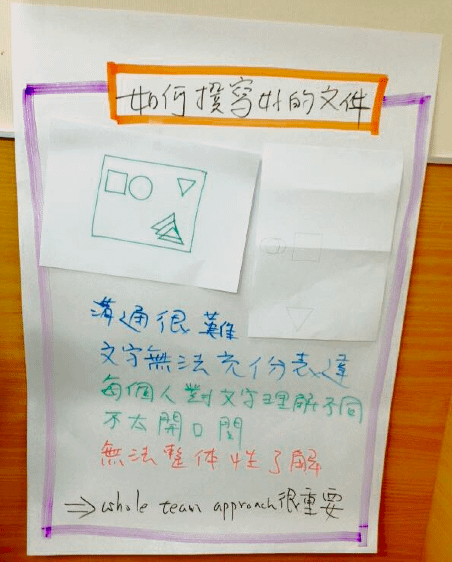 如何撰寫好的文件
溝通很難
文字無法充份表達
每個人對文字理解不同
不太開口問
無法整体性了解
⇒ whole team approach很重要